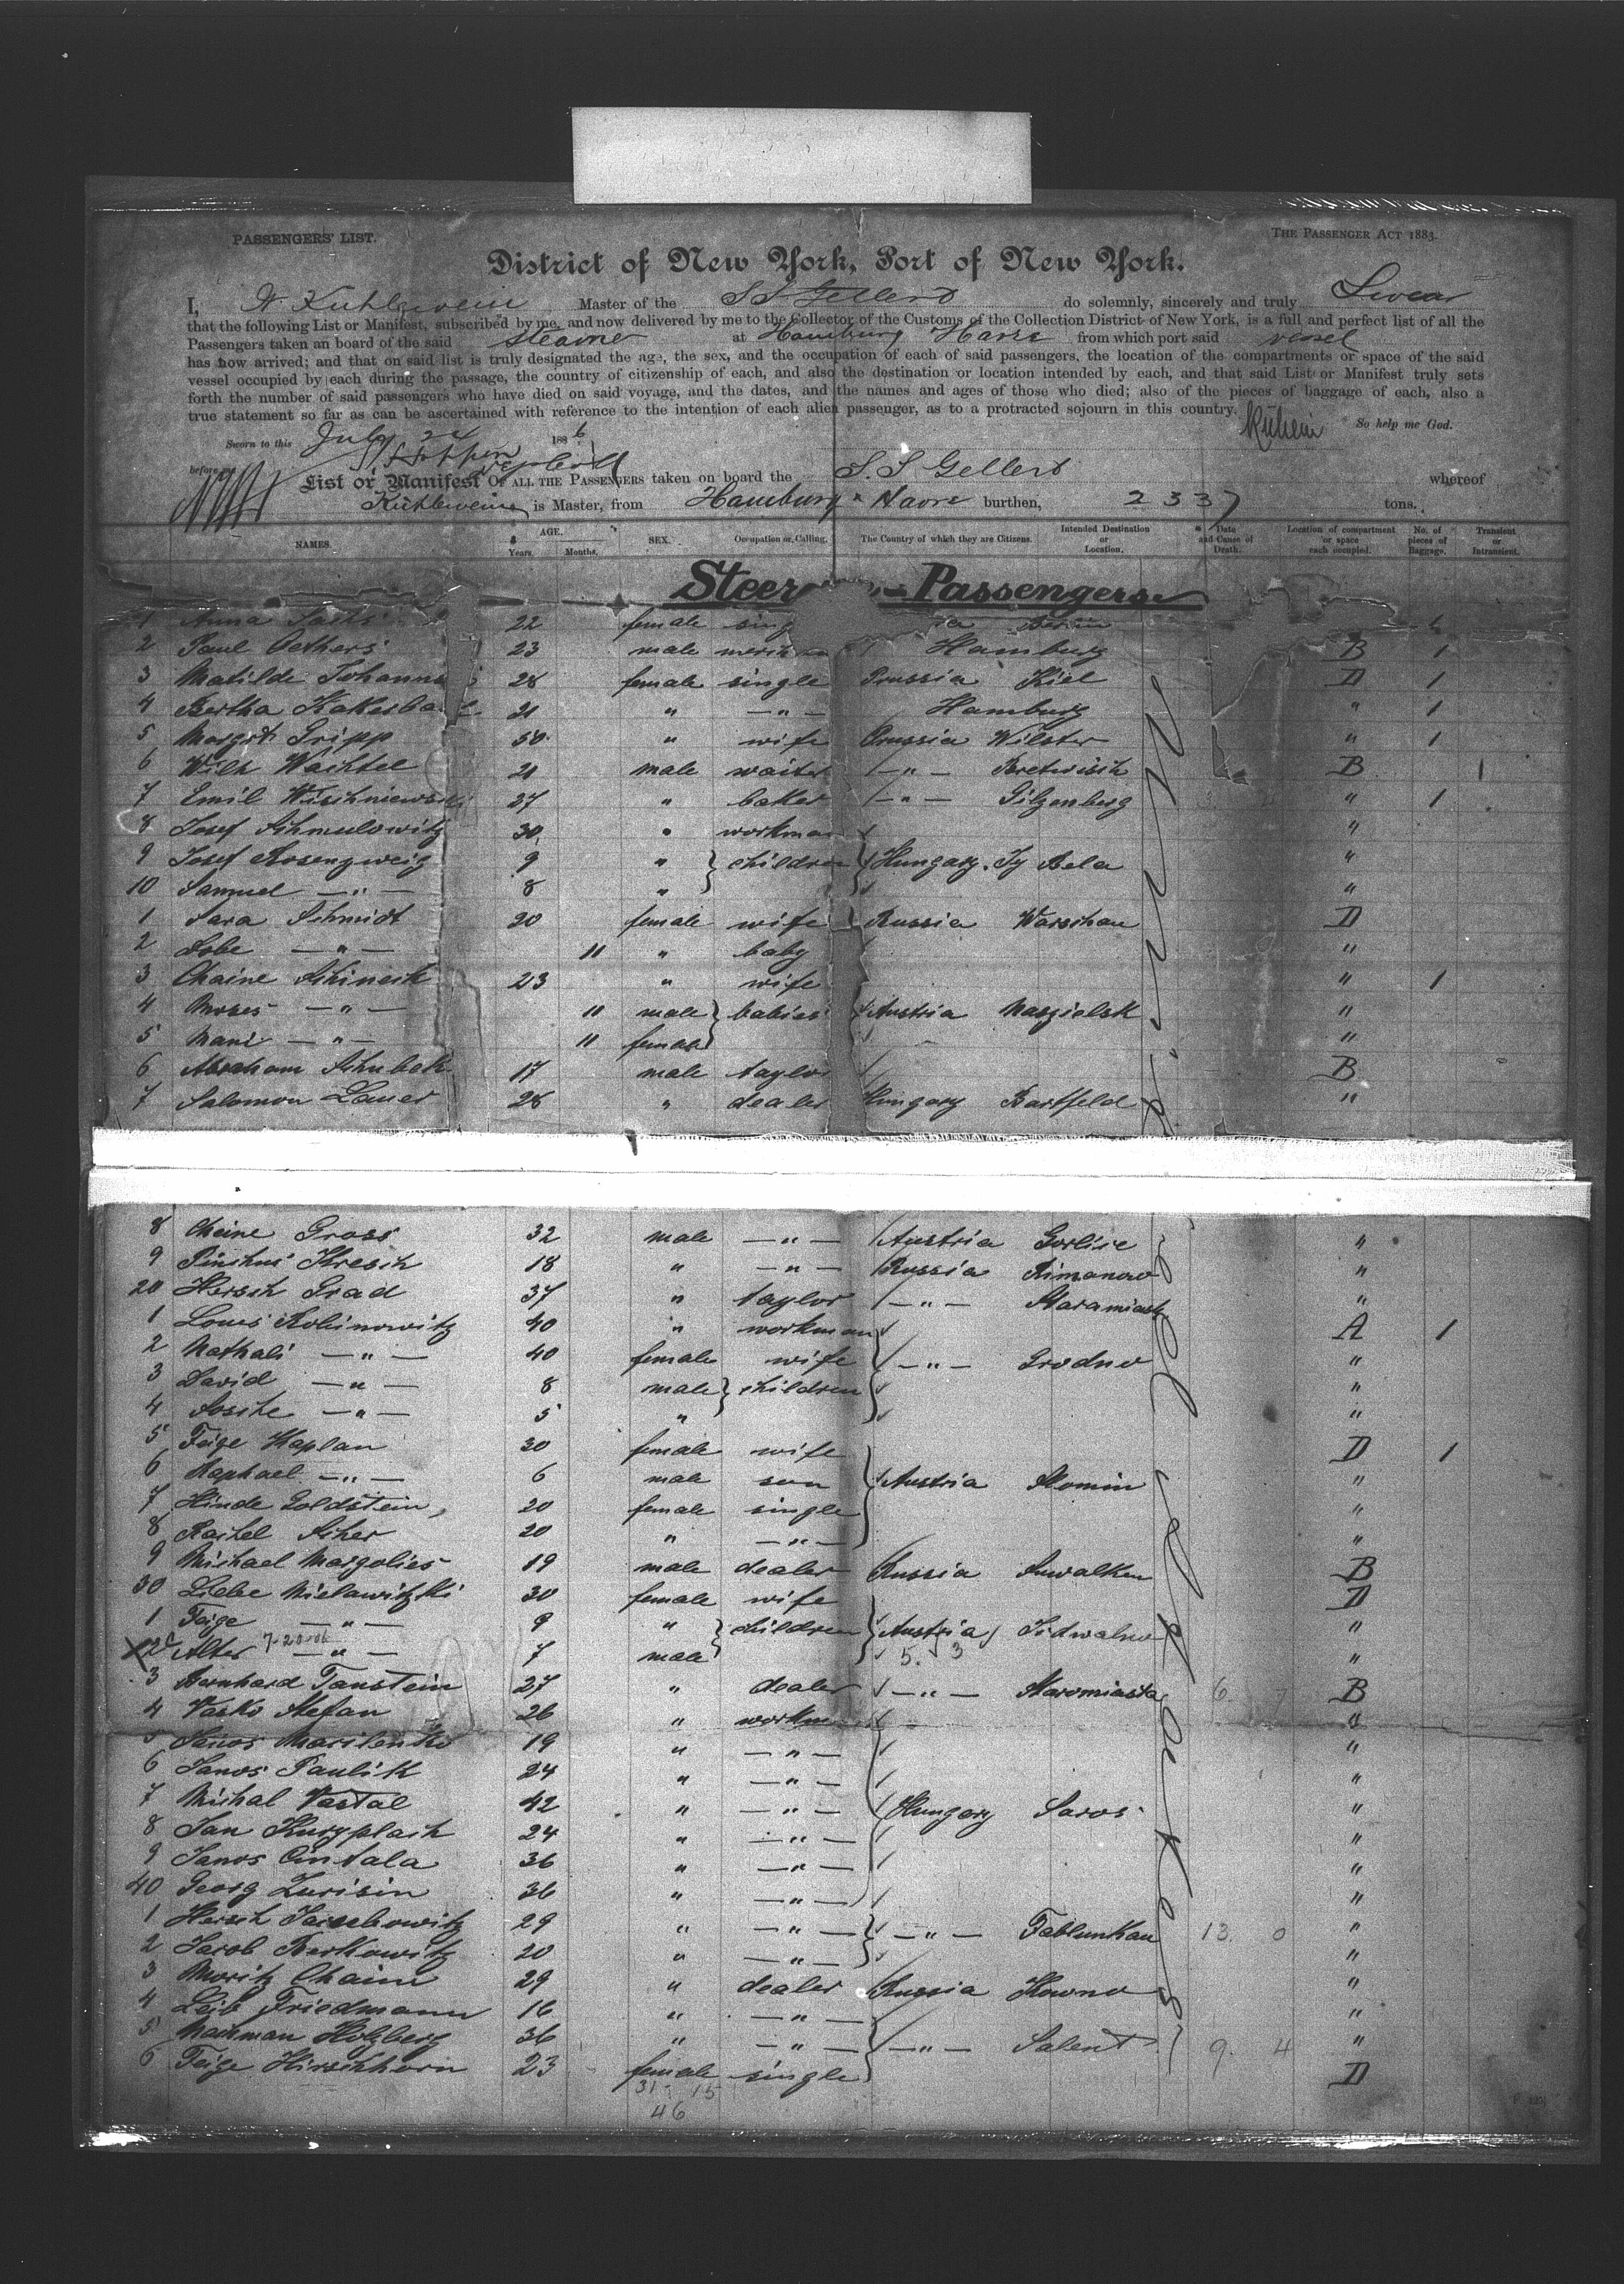 PASSENGERS' LIST.
THE PASSENGER ACT 1883.
District of New York, Port of New York.
I, W Kuhlewein Master of the S S Gellert do solemnly, sincerely and truly Swear
that the following List or Manifest, subscribed by me, and now delivered by me to the Collector of the Customs of the Collection District of New York, is a full and perfect list of all the
Passengers taken an board of the said steamer at Hamburg Havre from which port said vessel
has now arrived; and that on said list is truly designated the age, the sex, and the occupation of each of said passengers, the location of the compartments or space of the said
vessel occupied by each during the passage, the country of citizenship of each, and also the destination or location intended by each, and that said List or Manifest truly sets
forth the number of said passengers who have died on said voyage, and the dates, and the names and ages of those who died; also of the pieces of baggage of each, also a
true statement so far as can be ascertained with reference to the intention of each alien passenger, as to a protracted sojourn in this country. So help me God.
Sworn to this July 24 1886
before me
List or Manifest OF ALL THE PASSENGERS taken on board the S. S Gellert whereof
Kühlewein is Master, from Hamburg & Havre burthen, 2337 tons.
NAMES. AGE. Years. Months. SEX. Occupation or Calling. The Country of which they are Citizens. Intended Destination or Location. Date and Cause of Death. Location of compartment or space each occupied. No. of pieces of Baggage. Transient or Intransient.
Steer Passengers
1 Anna Sachs 22 female sing Berlin
2 Paul Oethers 23 male Hamburg B 1
3 Matilde Johanns 28 female single Prussia Kiel D 1
4 Bertha Kakerba 21 " — " — Hamburg " 1
5 Margrt Tripp 50 " wife Prussia Wilster " 1
6 Wilh Wachtel 21 male waiter — " — Bretwisch B 1
7 Emil Wischniewski 27 " baker — " — Gilgenberg " 1
8 Josef Schmulowitz 30 " workman "
9 Josef Rosenzweig 9 " children Hungary. Iy Bela "
10 Samuel — " — 8 " "
1 Sara Schmidt 20 female wife Russia Warschau D
2 — " — 11 " baby "
3 Chaine Schineck 23 " wife " 1
4 Moses — " — 11 male babies Austria Naszielsk "
5 Mani — " — 11 female "
6 Abraham Schuback 17 male taylor B
7 Salomon Lauer 28 " dealer Hungary Bartfeld "
8 Cheine Gross 32 male — " — Austria Gorlice "
9 Pinchus Kresch 18 " — " — Russia Rimanow "
20 Hersch Grad 37 " taylor — " — Staramiasta "
1 Louis Robinowitz 40 " workman A 1
2 Nathali — " — 40 female wife — " — Grodno "
3 David — " — 8 male children "
4 Sosche — " — 5 " "
5 Feige Kaplan 30 female wife D 1
6 Raphael — " — 6 male son Austria Slonim "
7 Hinde Goldstein 20 female single "
8 Rachel Scher 20 " — " — "
9 Michael Margolies 19 male dealer Russia Suwalken B
30 Liebe Mielawitzki 30 female wife D
1 Feige — " — 9 " children Austria Sidwalno "
2 Alter 7-20-06 — " — 7 male 5. 3 "
3 Bernhard Tanstein 27 " dealer — " — Staromiasta 6 7 B
4 Vasko Stefan 26 " workman "
5 Janos Marilenko 19 " — " — "
6 Janos Paulik 24 " — " — "
7 Michal Vastal 42 " — " — Hungary Saros "
8 Jan Kurzplach 24 " — " — "
9 Janos Cintala 36 " — " — "
40 Georg Zurisin 36 " — " — "
1 Hersch 29 " — " — — " — Fablunkau 13. 0 "
2 Jacob Berkowitz 20 " — " — "
3 Moritz Chaim 29 " dealer Russia Kowno "
4 Leib Friedmann 16 " — " — "
5 Nachman Holzberg 36 " — " — — " — Salent 9. 4 "
6 Feige Hirschhorn 23 female single D
31 15
46